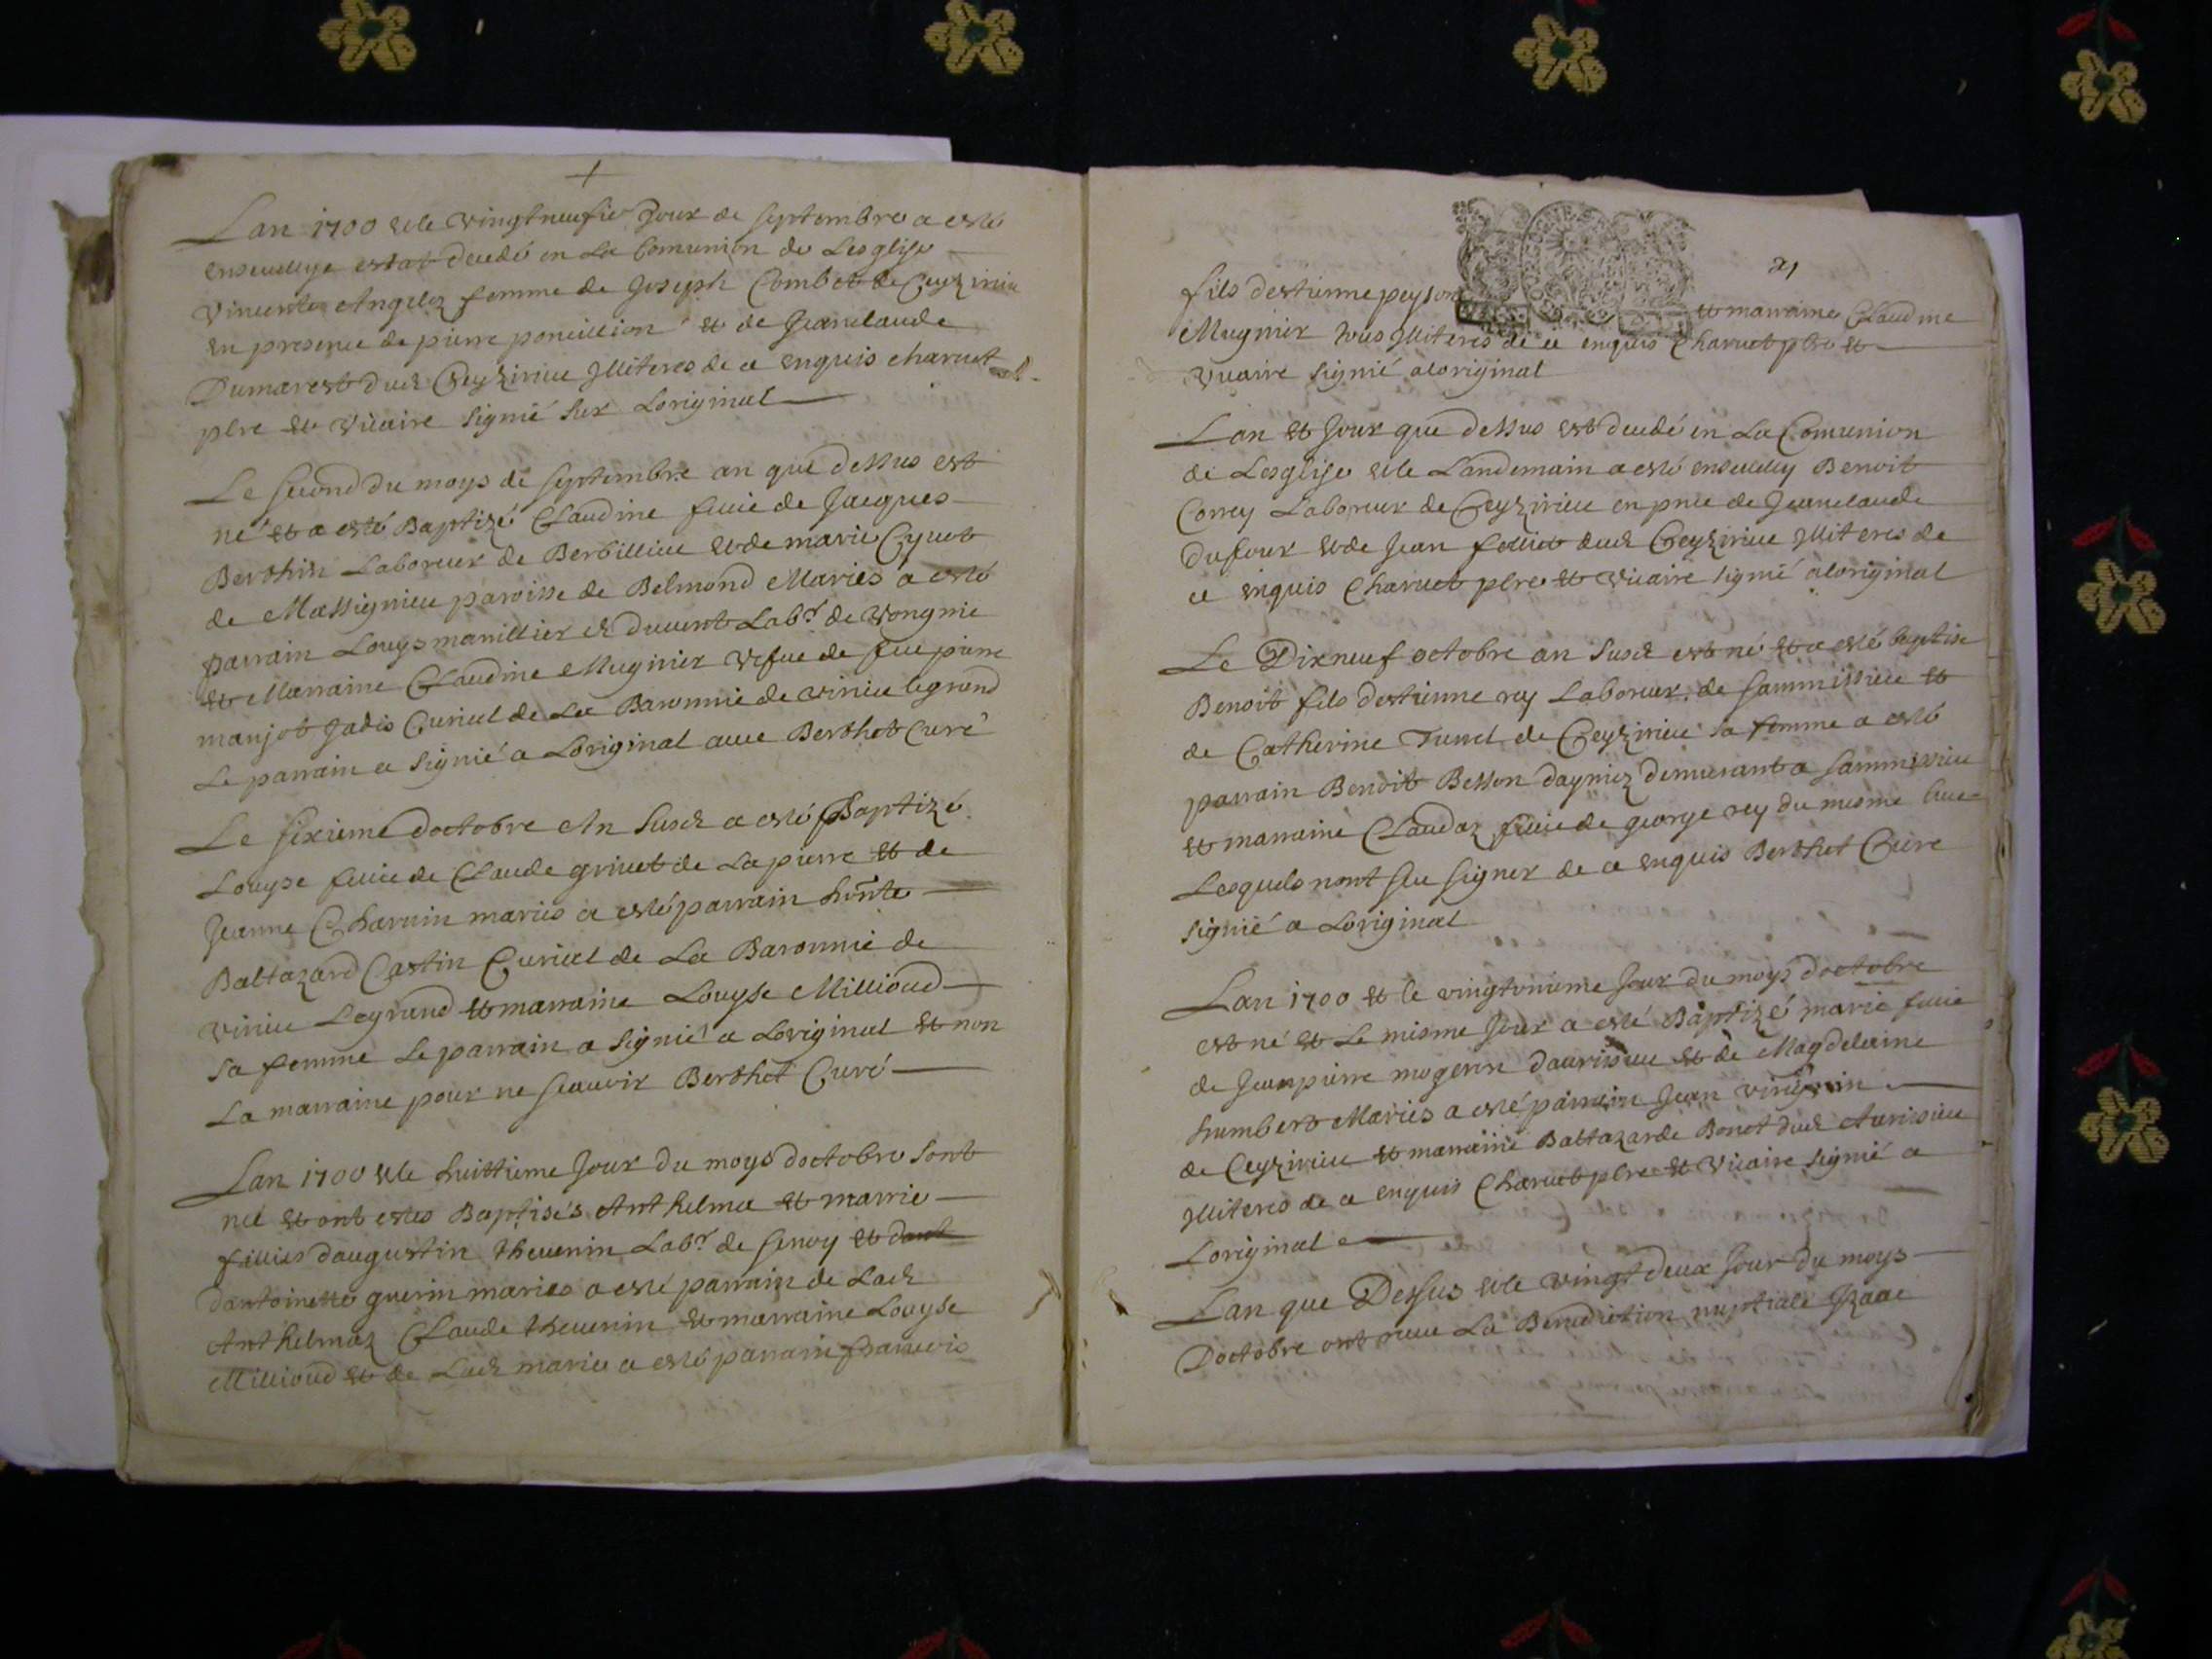 Lan 1700 & le vingtneufie Jour de septembre a esté
enseuelye estat decedé en La Comunion de Lesglise
Vincente Angeloz femme de Joseph Combet de Ceyzirieu
en presence de pierre poncillion et de Jeanclaude
Dumarest dud Ceyzirieu Illiteres de ce enquis charuet
pbre et vicaire signié sur Loriginal
Le second du moys de septembre an que dessus est
né et a esté Baptizé Claudine fillie de Jacques
Berthin Laboreur de Berbillieu et de marie Cyuot
de Massignieu paroisse de Belmond Maries a esté
parrain Louys manillier et ducent Labr de Vongnie
et Marraine Claudine Mugnier vefue de feu pierre
manjot Jadis Curial de La Baronnie de virieu legrand
Le parrain a signié a Loriginal auec Berthet Curé
Le sixieme doctobre An susd a esté Baptizé
Louyse fillie de Claude griuet de Lapierre et de
Jeanne Charuin mariés a esté parrain hónte
Baltazard Castin Curial de La Baronnie de
virieu Legrand et marraine Louyse Millioud
sa femme Le parrain a signié a Loriginal et non
La marraine pour ne scauoir Berthet Curé
Lan 1700 & le huittieme Jour du moys doctobre sont
neé et ont estes Baptisés Anthelma et marrie
fillies daugustin theuenin Labr de senoy et dant
dantoinette guerin maries a esté parrain de Lad
Anthelmaz Claude theuenin et marraine Louyse
Millioud et de Lad marie a esté parrain francois
21
fils destienne peyson et marraine Claudine
Mugnier tous Illiteres de ce enquis Charuet pbre et
vicaire signié aloriginal
Lan et Jour que dessus est decedé en La Comunion
de Lesglise & le Landemain a esté enseuely Benoit
Correy Laboreur de Ceyzirieu en pnce de Jeanclaude
Dufour et de Jean folliet dud Ceyzirieu Illiteres de
ce enquis Charuet pbre et vicaire signié aloriginal
Le Dixneuf octobre an susd est né et a esté baptise
Benoit fils destienne rey Laboreur de sammissieu et
de Catherine Tunel de Ceyzirieu sa femme a esté
parrain Benoit Besson dayniez demeurant a sammissieu
et marraine Claudaz fillie de george rey du mesme lieu
Lesquels nont sceu signer de ce enquis Berthet Cure
signié a Loriginal
Lan 1700 et le vingtunieme Jour du moys doctobre
est né et Le mesme Jour a esté Baptizé marie fillie
de Jeanpierre mogenin daurissieu et de Magdelaine
humbert Maries a esté parrain Jean vingtrin
de Ceyzirieu et marraine Baltazarde Bonet dud Aurissieu
Illiteres de ce enquis Charuet pbre et vicaire signié a
Loriginal
Lan que Dessus & le vingt deux Jour du moys
Doctobre ont receu La Benediction nuptiale Izaac